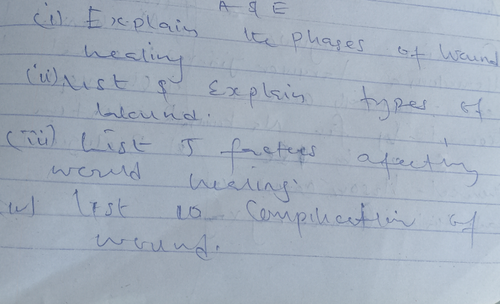 A & E
(i) Explain the phases of wound
healing
(ii) List & Explain types of
wound.
(iii) List 5 factors afecting
would healing.
iv) list 10 Complication of
wound.